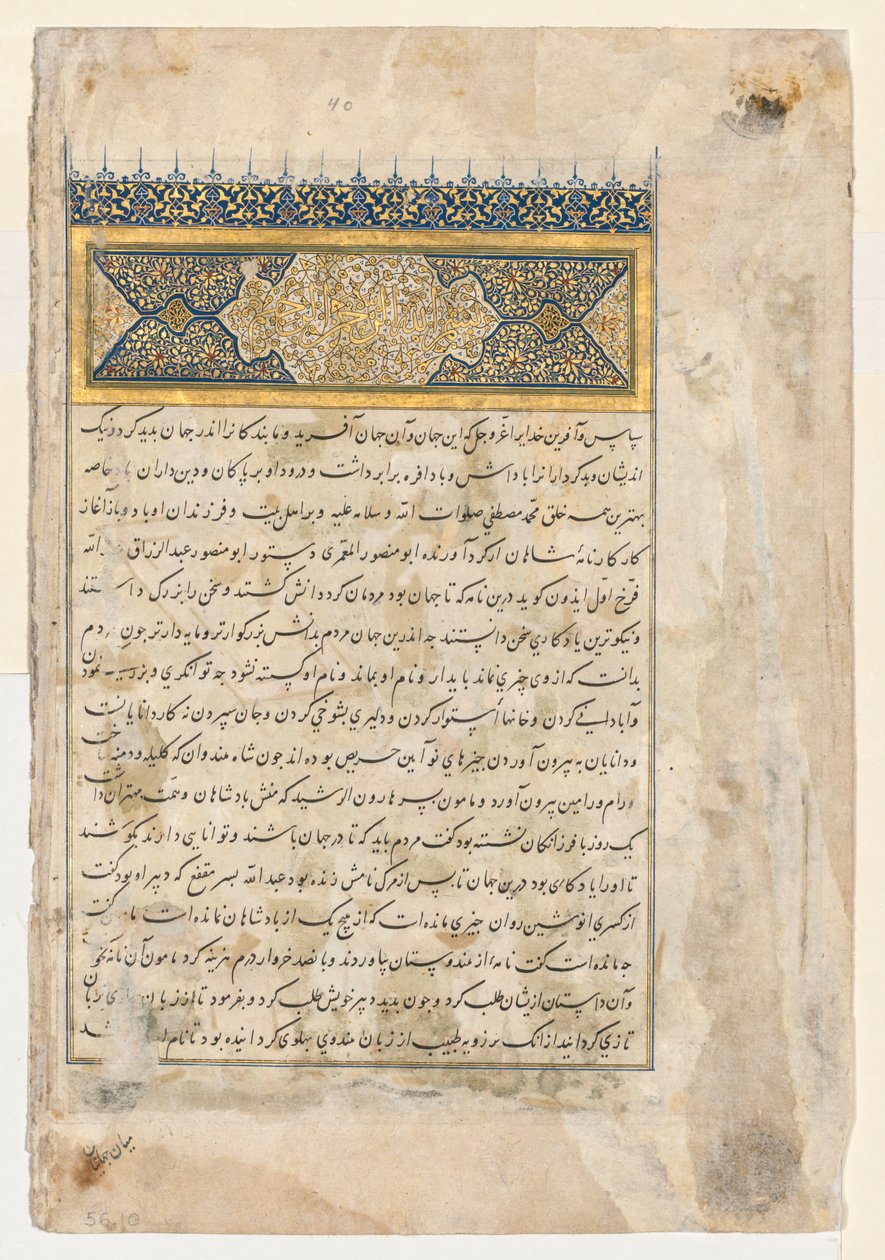 40
بسم الله الرحمن الرحیم
سپاس و آفرین خدایرا عزّ و جل که این جهان و آن جهان آفرید و ما بندکانرا اندر جهان بدید کرد و نیک
اندیشان و بدکردارانرا باداش و بادافره برابر داشت و درود او بر پاکان و دین داران باد خاصه
بهترین همه خلق محمّد مصطفی صلوات الله و سلامه علیه و بر اهل بیت و فرزندان او باد و باز آغاز
کار کارنامهٔ شاهان از کردآورنده ابو منصور المعمّری دستور ابو منصور عبد الرزاق عبد الله
فرّخ اوّل ایذون کوید درین نامه که تا جهان بود مردمان کرد دانش کشتند و سخن را بزرک
و نیکوترین یادکاری سخن دانستند جه اندرین جهان مردم بدانش بزرکوارتر و مایه دارتر جون مردم
بدانست که از وی چیزی نماند بایدار و نام او بماند و نام او کسسته نشود جه توانکری و
و آبادانی کردن و خانها استوار کردن و دلیری بشوخی کردن و جان سپردن نه کار دانایانست
و دانایان به بیرون آوردن جیزهای نو آیین حریص بوده اند جون شاه هندوان که کلیله و دمنه ساخت
و رام و رامین بیرون آورد و مامون بسر هارون الرشید که منش بادشاهان و همّت مهتران داشت
یک روز با فرزانکان نشسته بود کفت مردم باید که تا در جهان باشند و توانایی دارند بکوشند
تا اورا یادکاری بود درین جهان تا بس از مرک نامش زنده بود عبد الله بسر مقفع که دبیر او بود کفت
از کسری انوشین روان جیزی مانده است که از هیچ یک از بادشاهان نمانده است کفت
جه مانده است کفت نامهٔ از هندوستان بیاوردند و بانصد خروار درم هزینه کرد مامون آن نامه
و آن داستان ازیشان طلب کرد و جون بدید دبیر خویش طلب کرد و بفرمود تا از زبان
تازی کردانید از انک برزویه طبیب از زبان هندوی بهلوی کردانیده بود تا نام
56.10